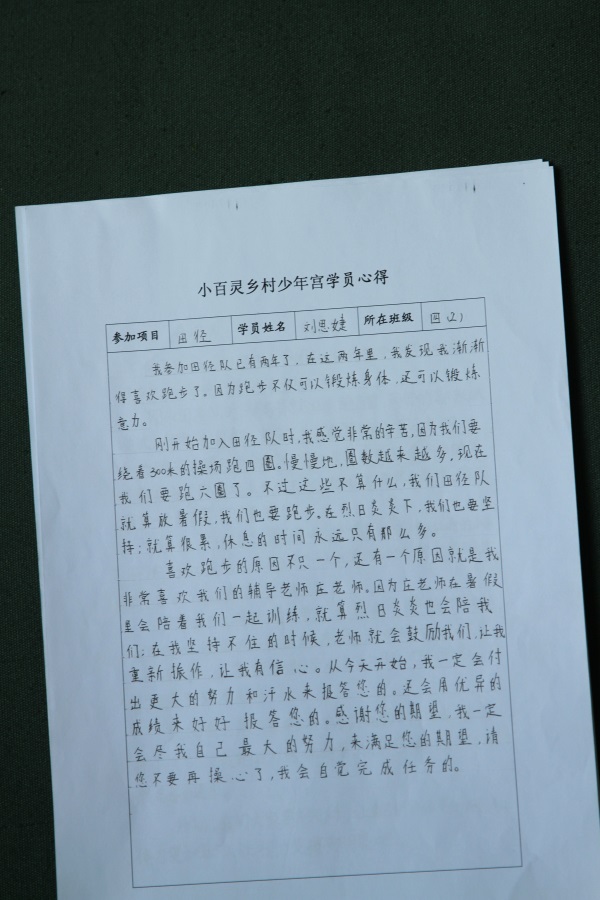 小百灵乡村少年宫学员心得
参加项目 田径 学员姓名 刘思婕 所在班级 四(2)
我参加田径队已有两年了，在这两年里，我发现我渐渐
得喜欢跑步了。因为跑步不仅可以锻炼身体，还可以锻炼
意力。
刚开始加入田径队时，我感觉非常的辛苦，因为我们要
绕着300米的操场跑四圈。慢慢地，圈数越来越多，现在
我们要跑六圈了。不过这些不算什么，我们田径队
就算放暑假，我们也要跑步。在烈日炎炎下，我们也要坚
持；就算很累，休息的时间永远只有那么多。
喜欢跑步的原因不只一个，还有一个原因就是我
非常喜欢我们的辅导老师庄老师。因为庄老师在暑假
里会陪着我们一起训练，就算烈日炎炎也会陪我
们；在我坚持不住的时候，老师就会鼓励我们，让我
重新振作，让我有信心。从今天开始，我一定会付
出更大的努力和汗水来报答您的。还会用优异的
成绩来好好报答您的。感谢您的期望，我一定
会尽我自己最大的努力，来满足您的期望，请
您不要再操心了，我会自觉完成任务的。